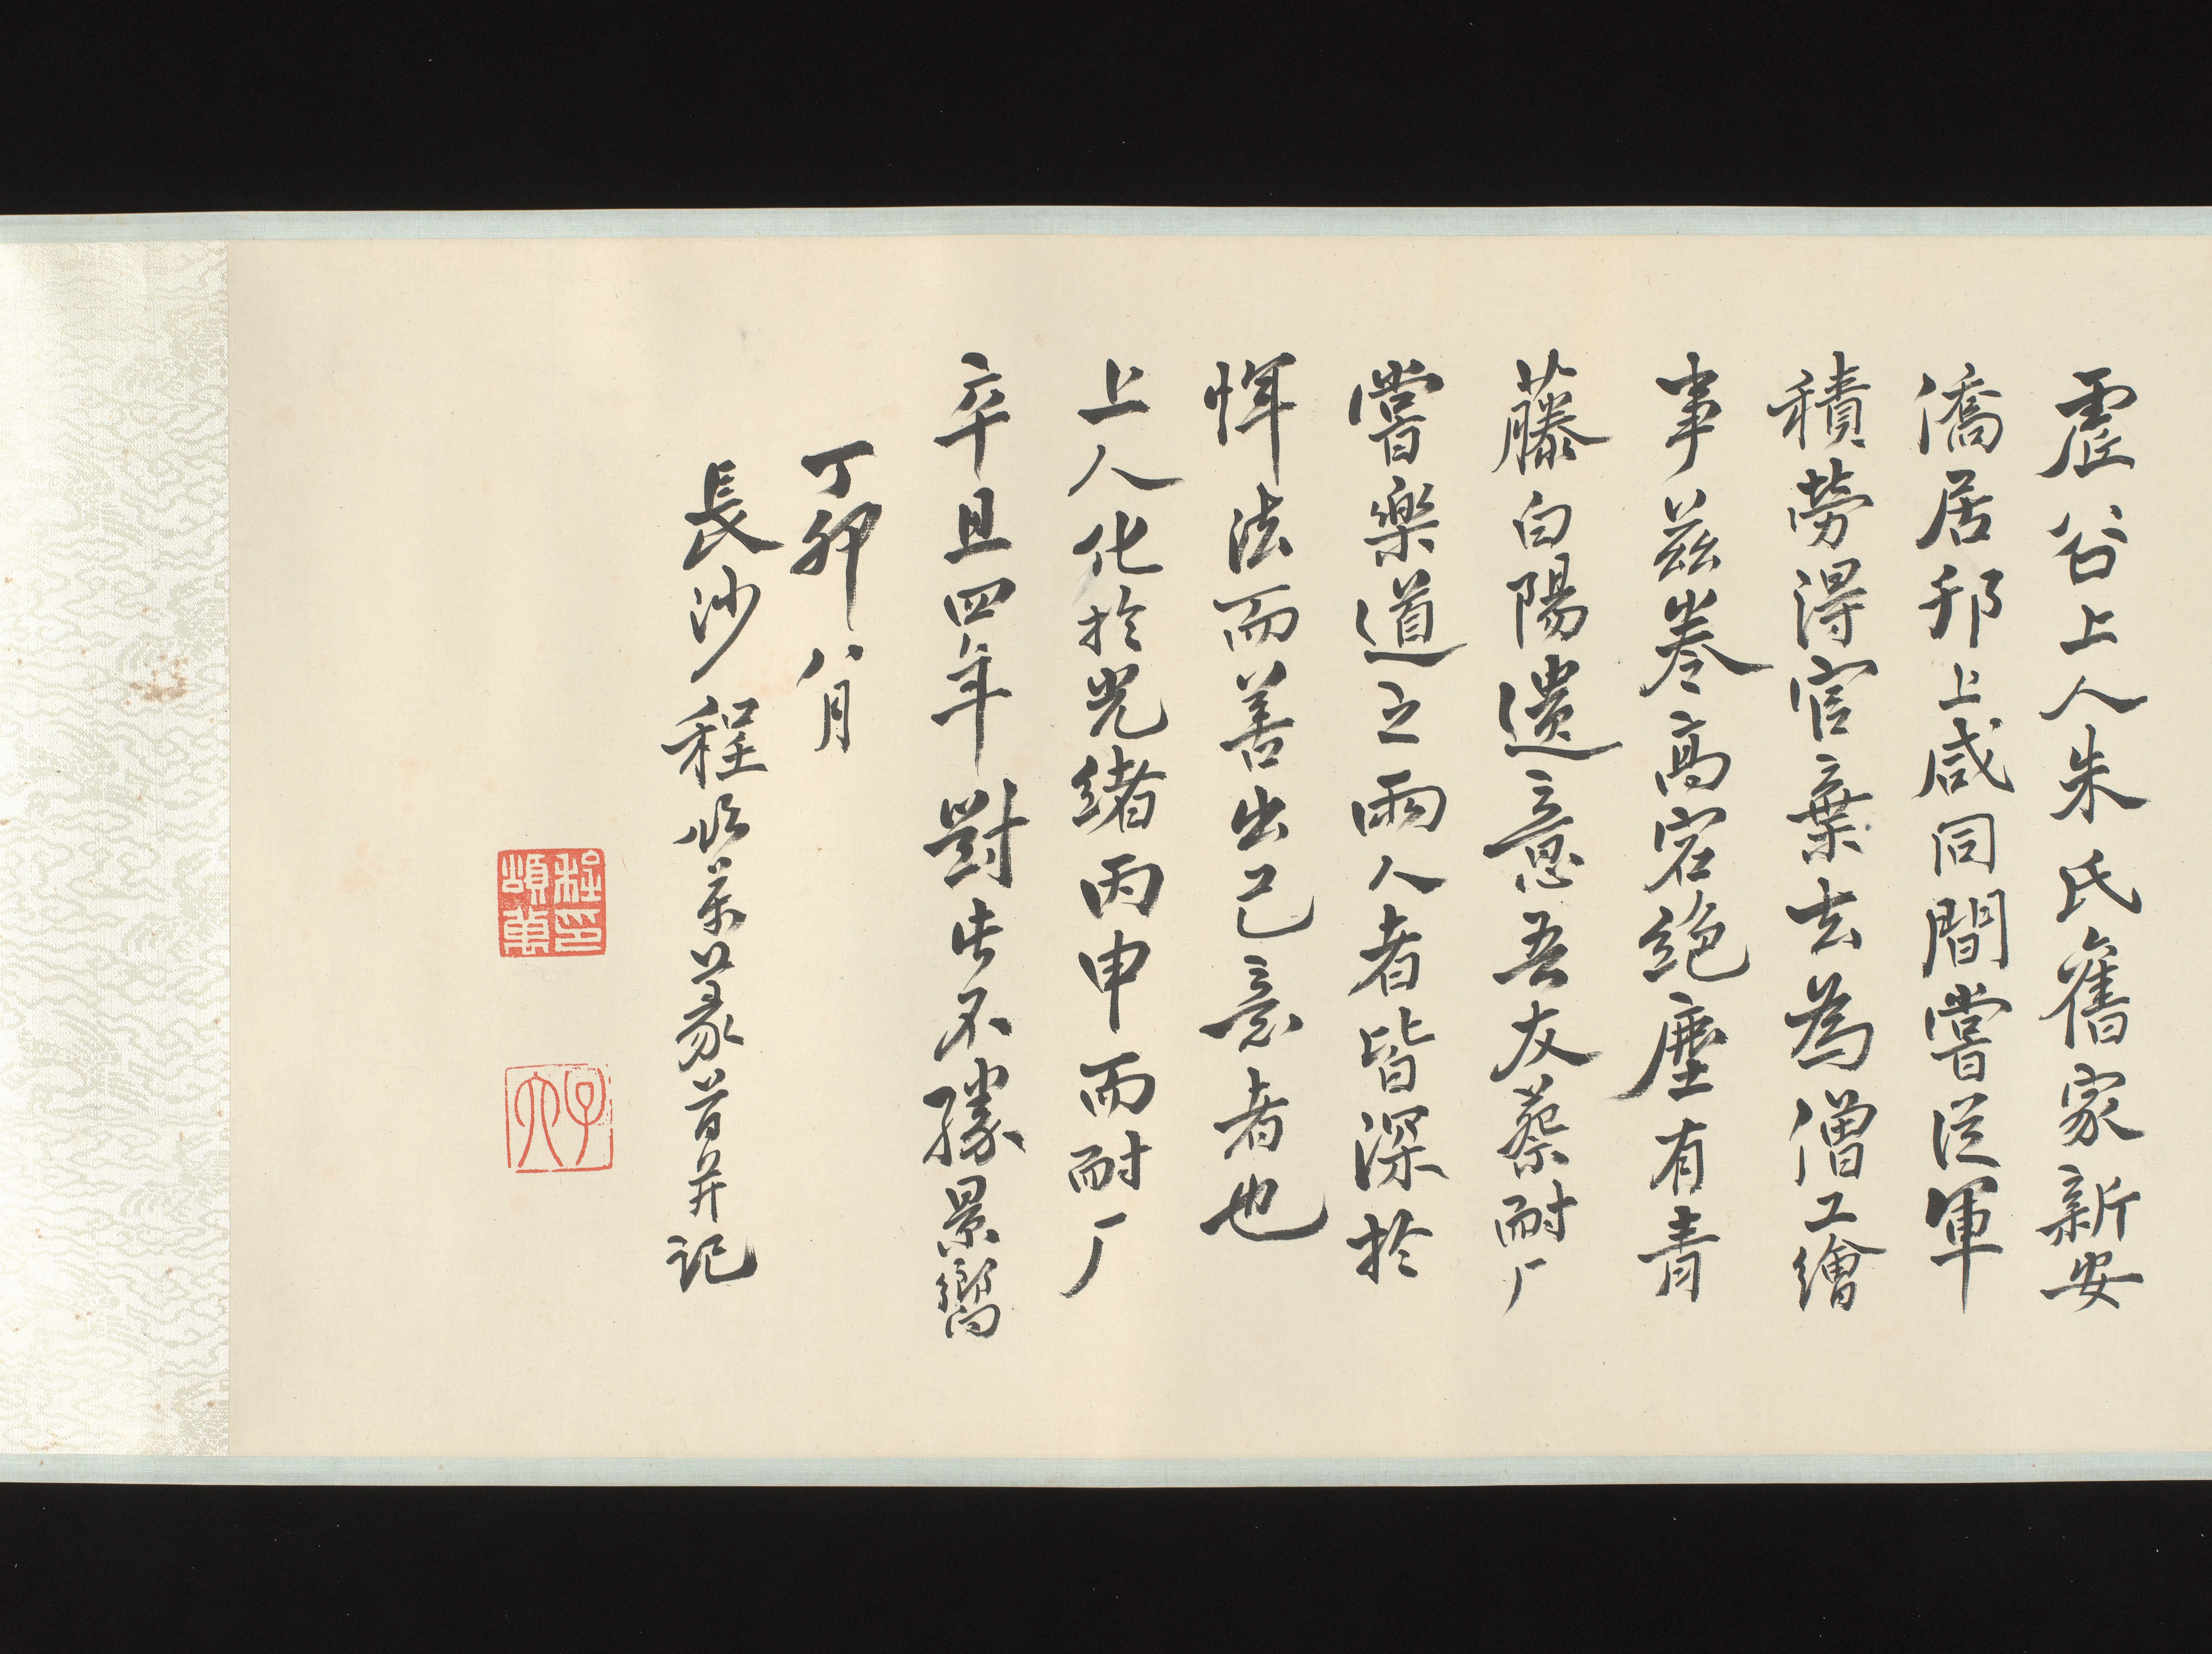 虛谷上人朱氏舊家新安
僑居邗上咸同間嘗從軍
積勞得官棄去為僧工繪
事茲卷高宕絕塵有青
藤白陽遺意吾友蔡耐厂
嘗樂道之兩人者皆深於
惲法而善出己意者也
上人化於光緒丙申而耐厂
卒且四年對此不勝景嚮
丁卯八月
長沙程頌萬篆首并記
程印頌萬
子大